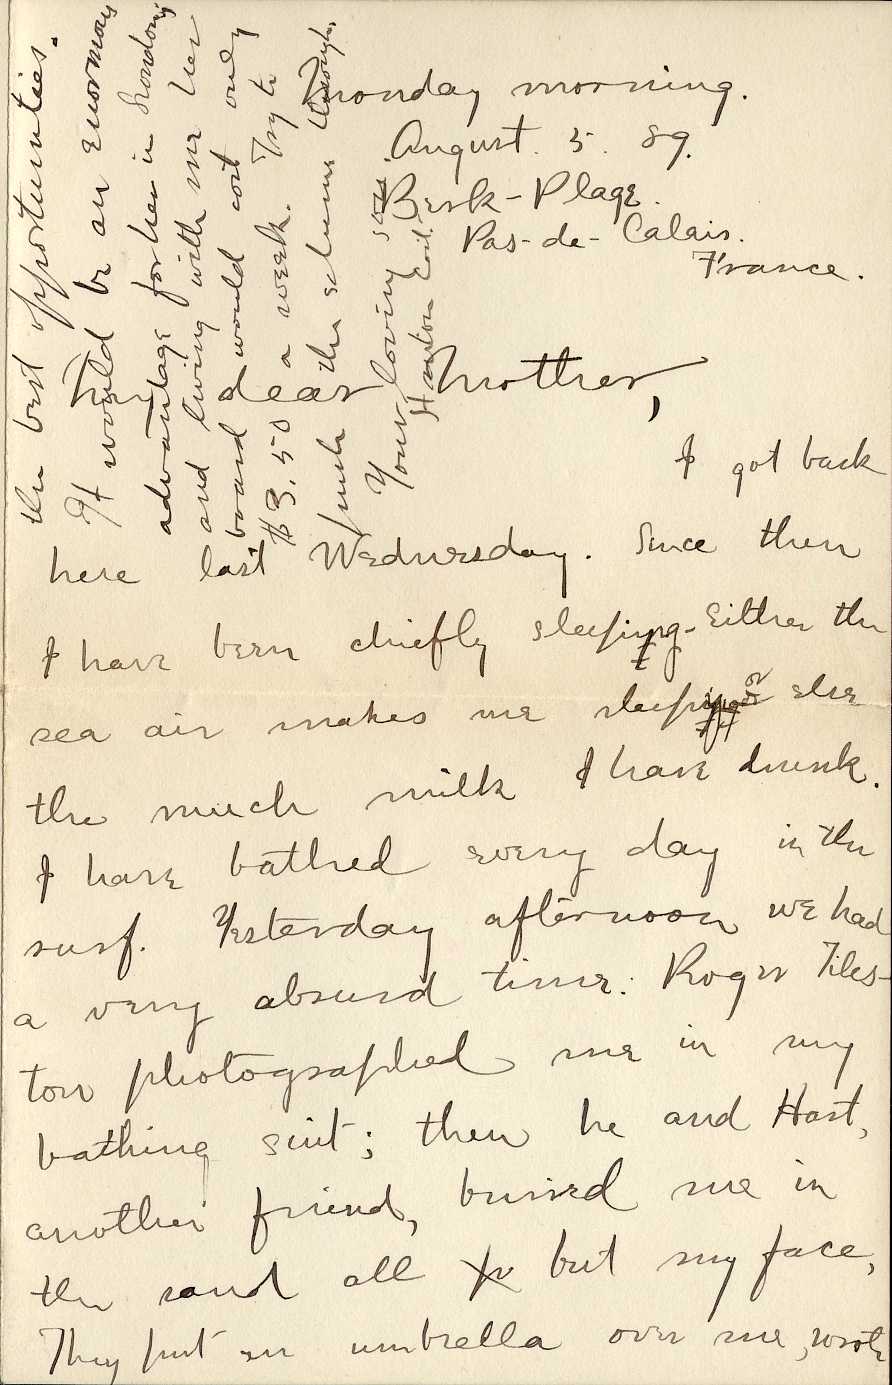 Monday morning.
August. 5. 89.
Berk-Plage.
Pas-de-Calais.
France.
My dear Mother,
I got back
here last Wednesday. Since then
I have been chiefly sleeping. Either the
sea air makes me sleepy or else
the much milk I have drunk.
I have bathed every day in the
surf. Yesterday afternoon we had
a very absurd time: Roger Tiles-
ton photographed me in my
bathing suit; then he and Hast,
another friend, buried me in
the sand all but my face,
They put an umbrella over me, wrote
the best opportunities.
It would be an enormous
advantage for her in London,
and living with me her
board would cost only
$3.50 a week. Try to
push the scheme through.
Your loving son.